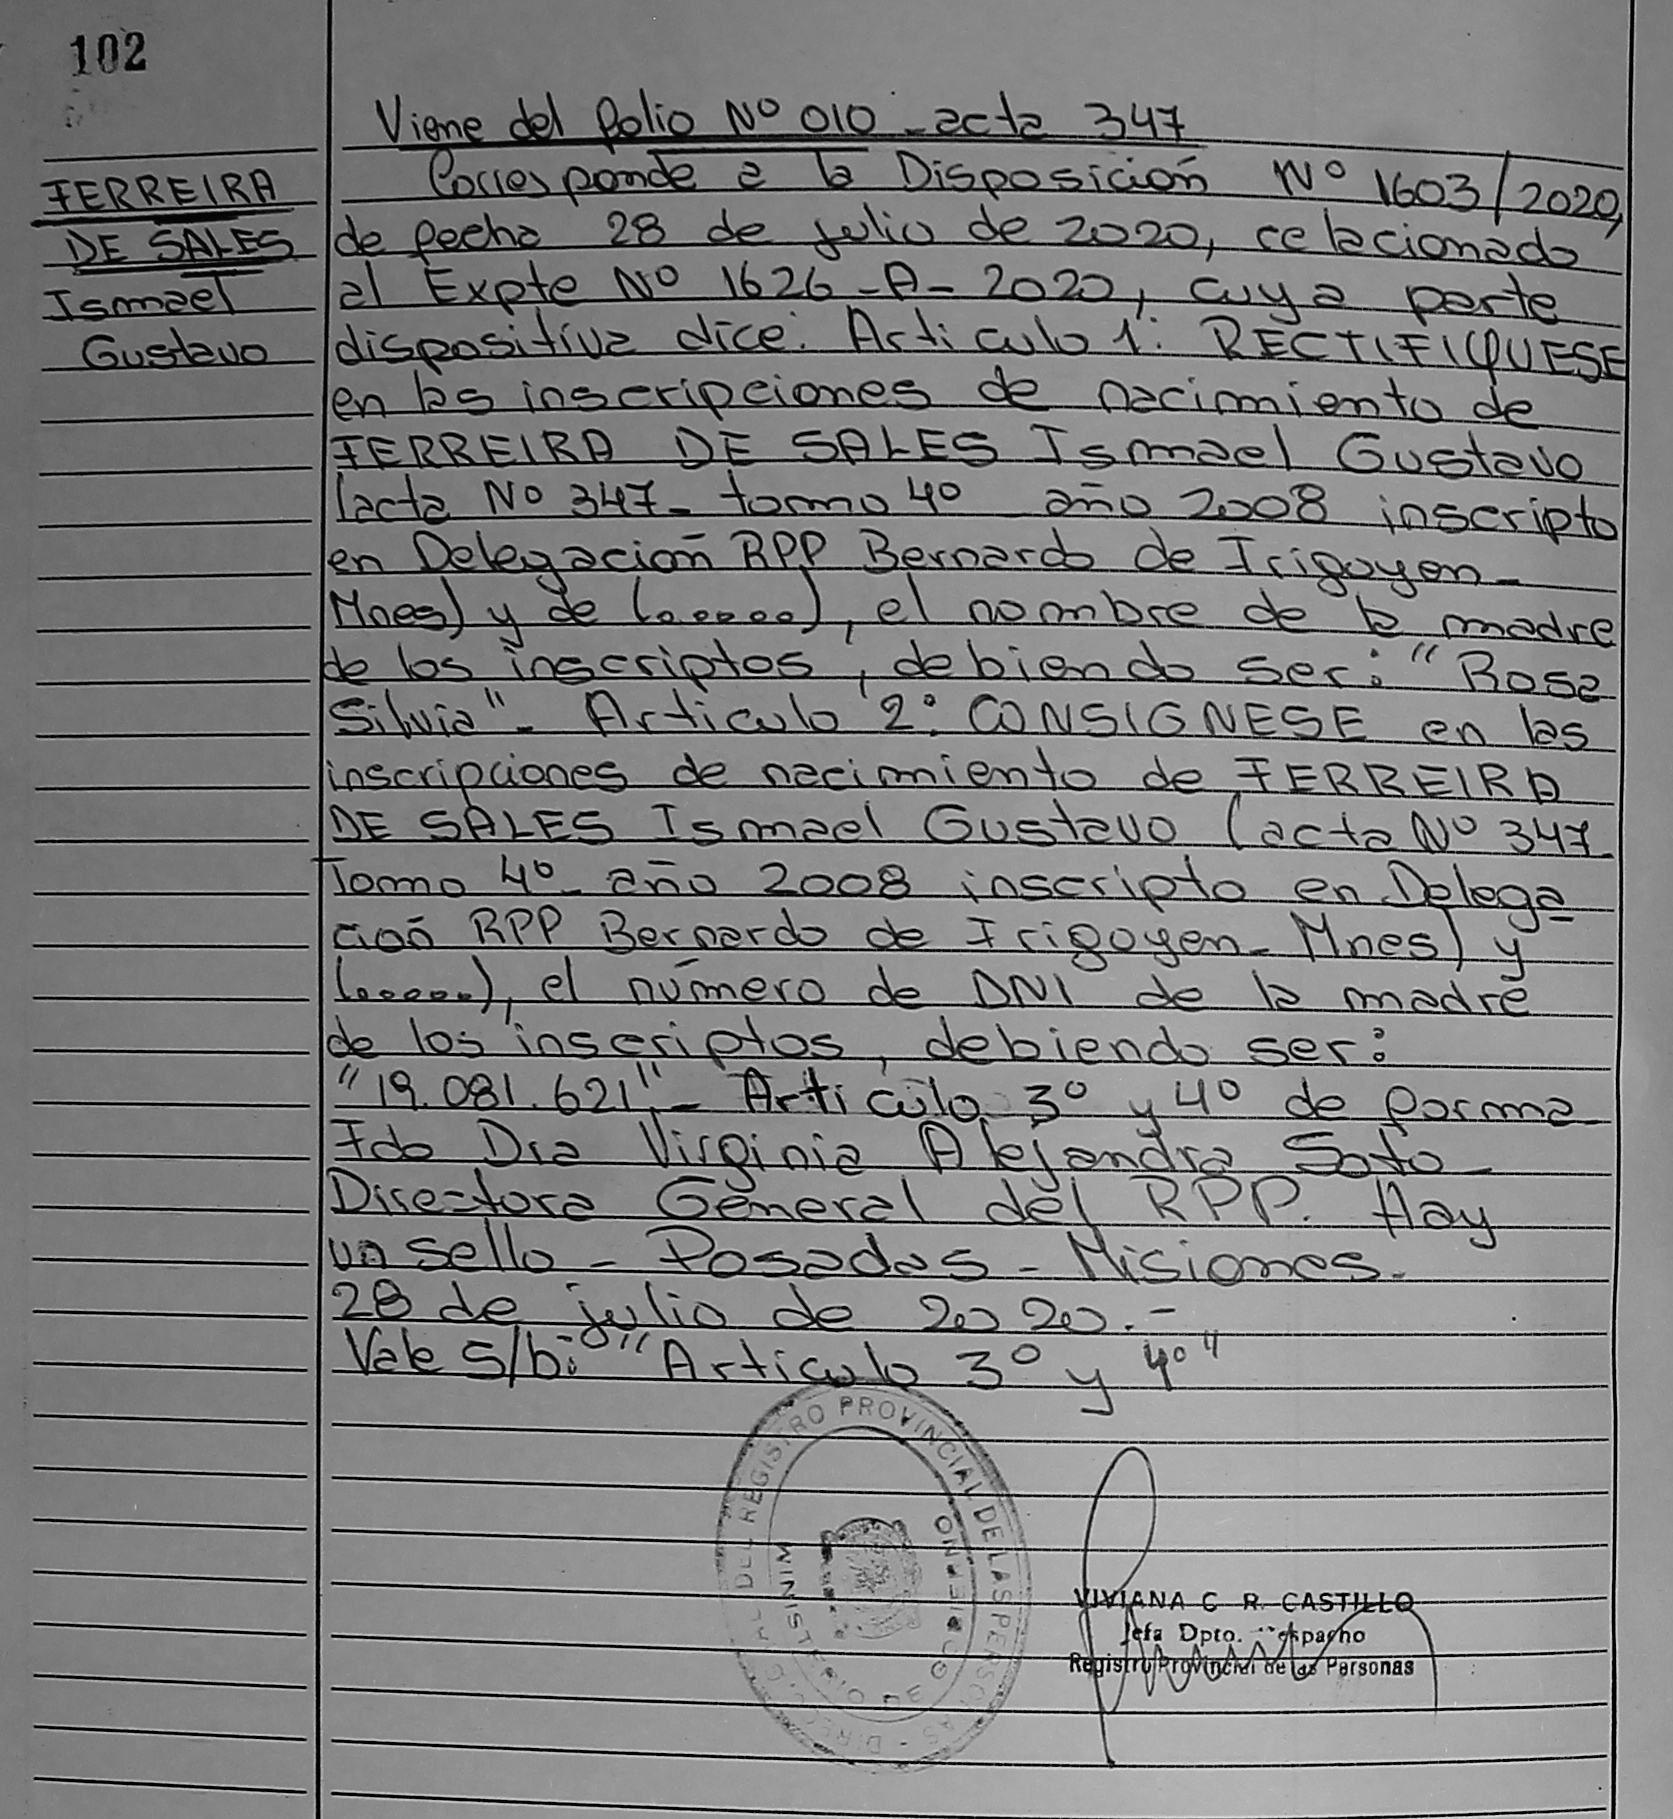 102
Viene del folio Nº 010 - acta 347
FERREIRA
DE SALES
Ismael
Gustavo
Corresponde a la Disposición Nº 1603/2020,
de fecha 28 de julio de 2020, relacionado
al Expte Nº 1626-A-2020, cuya parte
dispositiva dice: Articulo 1: RECTIFIQUESE
en las inscripciones de nacimiento de
FERREIRA DE SALES Ismael Gustavo
(acta Nº 347- tomo 4º año 2008 inscripto
en Delegación RPP Bernardo de Irigoyen-
Mnes) y de (......), el nombre de la madre
de los inscriptos, debiendo ser: "Rosa
Silvia"- Articulo 2: CONSIGNESE en las
inscripciones de nacimiento de FERREIRA
DE SALES Ismael Gustavo (acta Nº 347
Tomo 4º- año 2008 inscripto en Delega
ción RPP Bernardo de Irigoyen- Mnes) y
(......), el número de DNI de la madre
de los inscriptos, debiendo ser:
"19.081.621".- Artículo 3º y 4º de forma
Fdo Dra Virginia Alejandra Soto-
Directora General del RPP. Hay
un sello - Posadas - Misiones.
28 de julio de 2020.-
Vale s/b: "Articulo 3º y 4º"
DEL REGISTRO PROVINCIAL DE LAS PERSONAS - DIREC
MINISTERIO DE GOBIERNO
VIVIANA C R. CASTILLO
Jefa Dpto. Despacho
Registro Provincial de las Personas